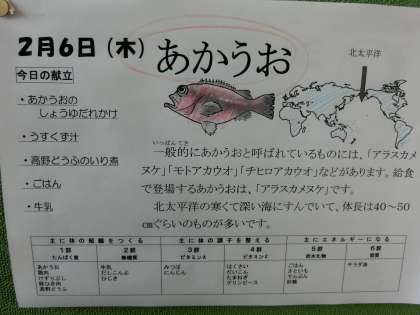 2月6日(木)
あかうお
北太平洋
今日の献立
・あかうおの
しょうゆだれかけ
・うすくず汁
・高野どうふのいり煮
・ごはん
・牛乳
いっぱんてき
一般的にあかうおと呼ばれているものには、「アラスカメ
ヌケ」「モトアカウオ」「チヒロアカウオ」などがあります。給食
で登場するあかうおは、「アラスカメヌケ」です。
北太平洋の寒くて深い海にすんでいて、体長は40~50
cmぐらいのものが多いです。
主に体の組織をつくる 主に体の調子を整える 主にエネルギーになる
1群 2群 3群 4群 5群 6群
たんぱく質 無機質 ビタミンA ビタミンC 炭水化物 脂質
あかうお 牛乳 みつば はくさい ごはん サラダ油
鶏肉 だしこんぶ にんじん だいこん さといも
けずりぶし ひじき たまねぎ でんぷん
豚ひき肉 グリンピース 砂糖
高野どうふ